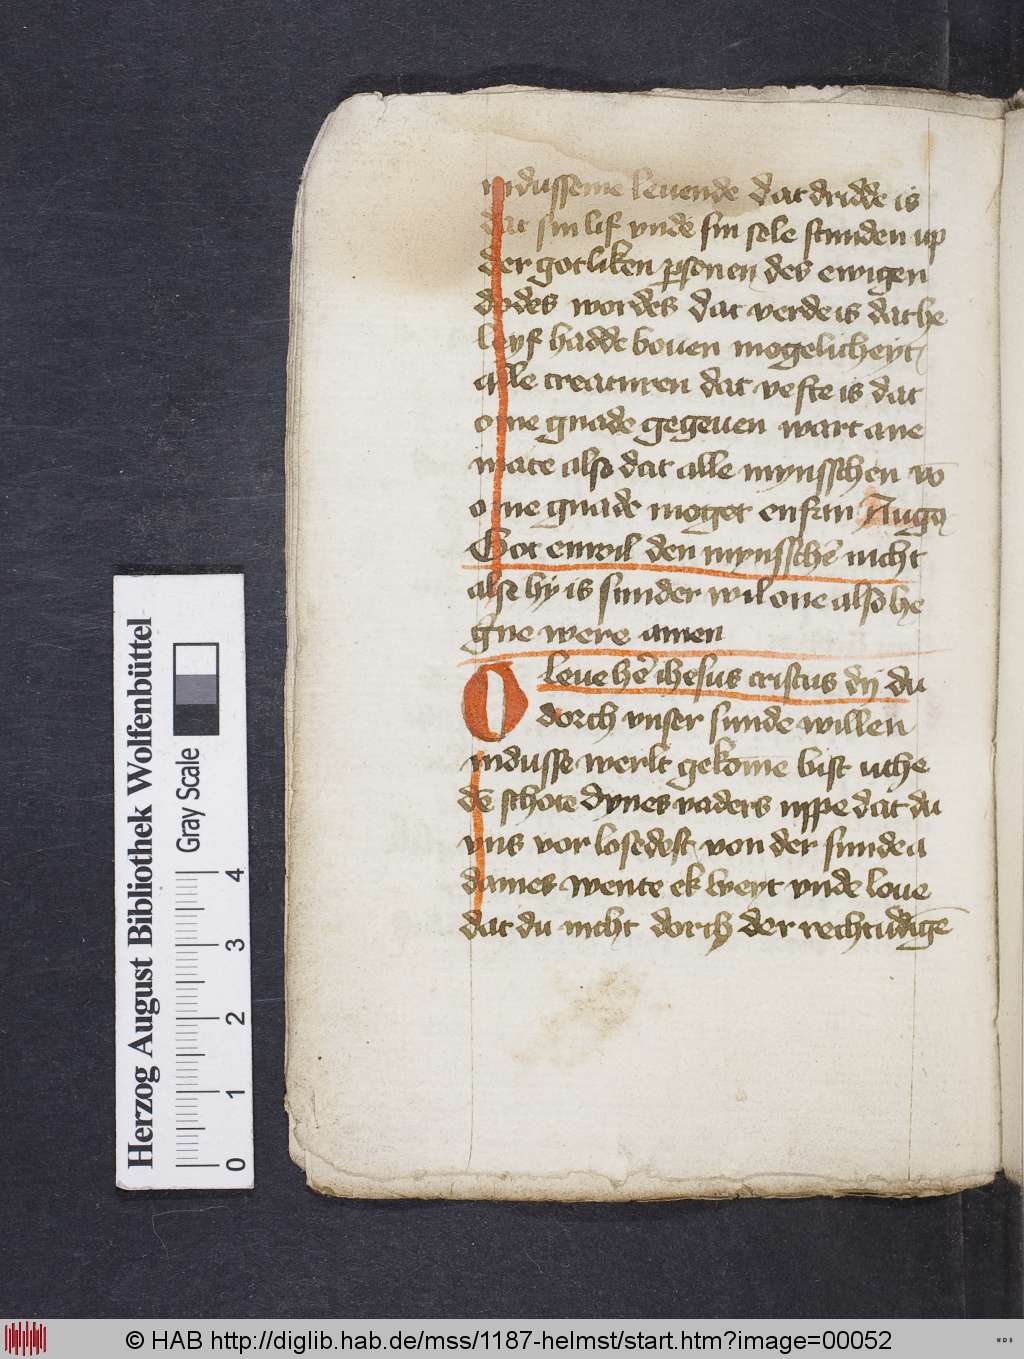 in dusseme leuende dat dridde is
dat sin lif vnde sin sele stunden up
der gotliken psonen des ewigen
dodes wordes dat verde is dat he
leyf hadde bouen mogelicheyt
alle creaturen dat vefte is dat
ome gnade gegeuen wart ane
mate also dat alle mynsschen vō
ome gnade moget enfan Augꝰ
Got enwil den mynsschē nicht
alse hy is sunder wil one also he
gne were amen
O leue hē ihesus cristus dy du
dorch vnser sunde willen
in dusse werlt gekome bist uthe
dē schote dynes vaders uppe dat du
vns vor losedest von der sunde a
dames wente ek weyt vnde loue
dat du nicht dorch der rechtuerdigē
Herzog August Bibliothek Wolfenbüttel
Gray Scale
0 1 2 3 4
© HAB http://diglib.hab.de/mss/1187-helmst/start.htm?image=00052